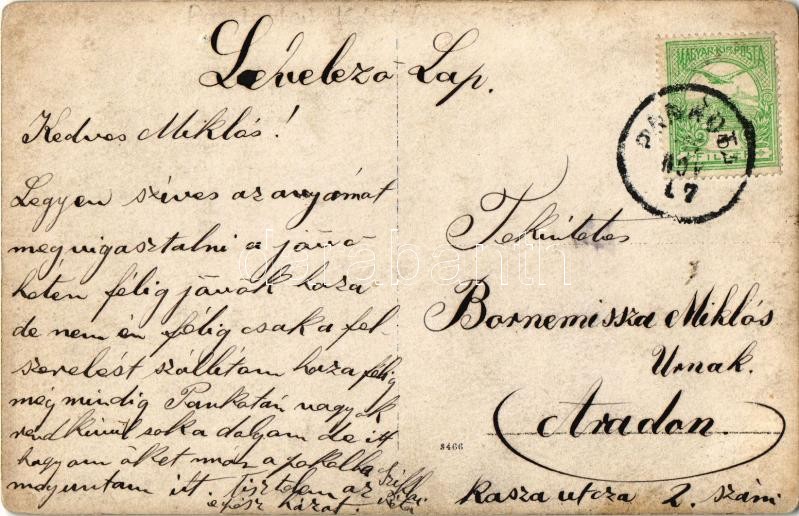 Levelező-Lap.
Kedves Miklós!
Legyen szíves az anyámat
megvigasztalni a jövő
héten félig jövök haza
de nem én félig csak a fel-
szerelést szállítom haza félig
még mindig Pankotán vagyok
rendkívül sok a dolgom de itt
hagyom őket már a pokolba
meguntam itt. Tisztelem az
egész házat.
MAGYAR KIR. POSTA
FILLÉR
PANKOTA
NOV
17
Tekintetes
Bornemissza Miklós
Urnak.
Aradon.
Kasza utcza 2. szám
8466
darabanth